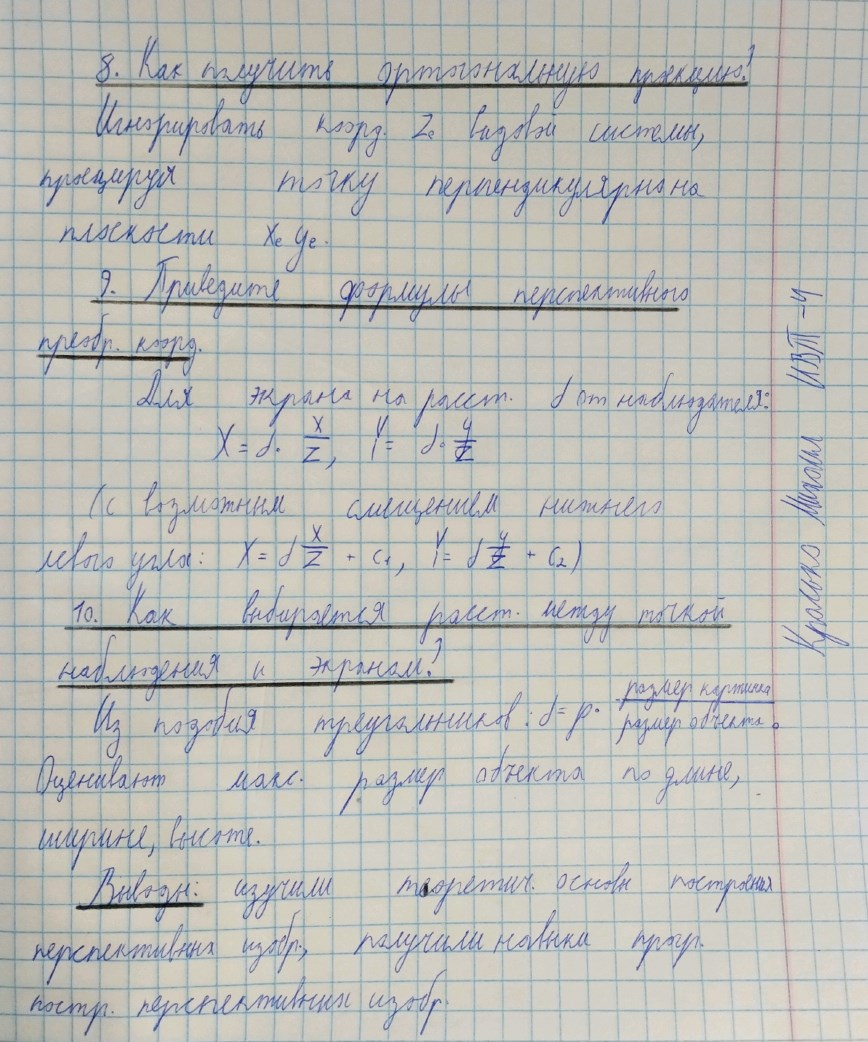 8. Как получить ортогональную проекцию?
Игнорировать коорд. Zₑ видовой системы,
проецируя точку перпендикулярно на
плоскости xₑ yₑ.
9. Приведите формулы перспективного
преобр. коорд.
Для экрана на расст. d от наблюдателя:
X = d · x/z, Y = d · y/z
(с возможным смещением нижнего
левого угла: X = d x/z + c₁, Y = d y/z + c₂)
10. Как выбирается расст. между точкой
наблюдения и экраном?
Из подобия треугольников: d = ρ · размер картинки / размер объекта.
Оценивают макс. размер объекта по длине,
ширине, высоте.
Выводы: изучили теоретич. основы построения
перспективных изобр., получили навыки прогр.
постр. перспективных изобр.
Михаил ИВТ-4